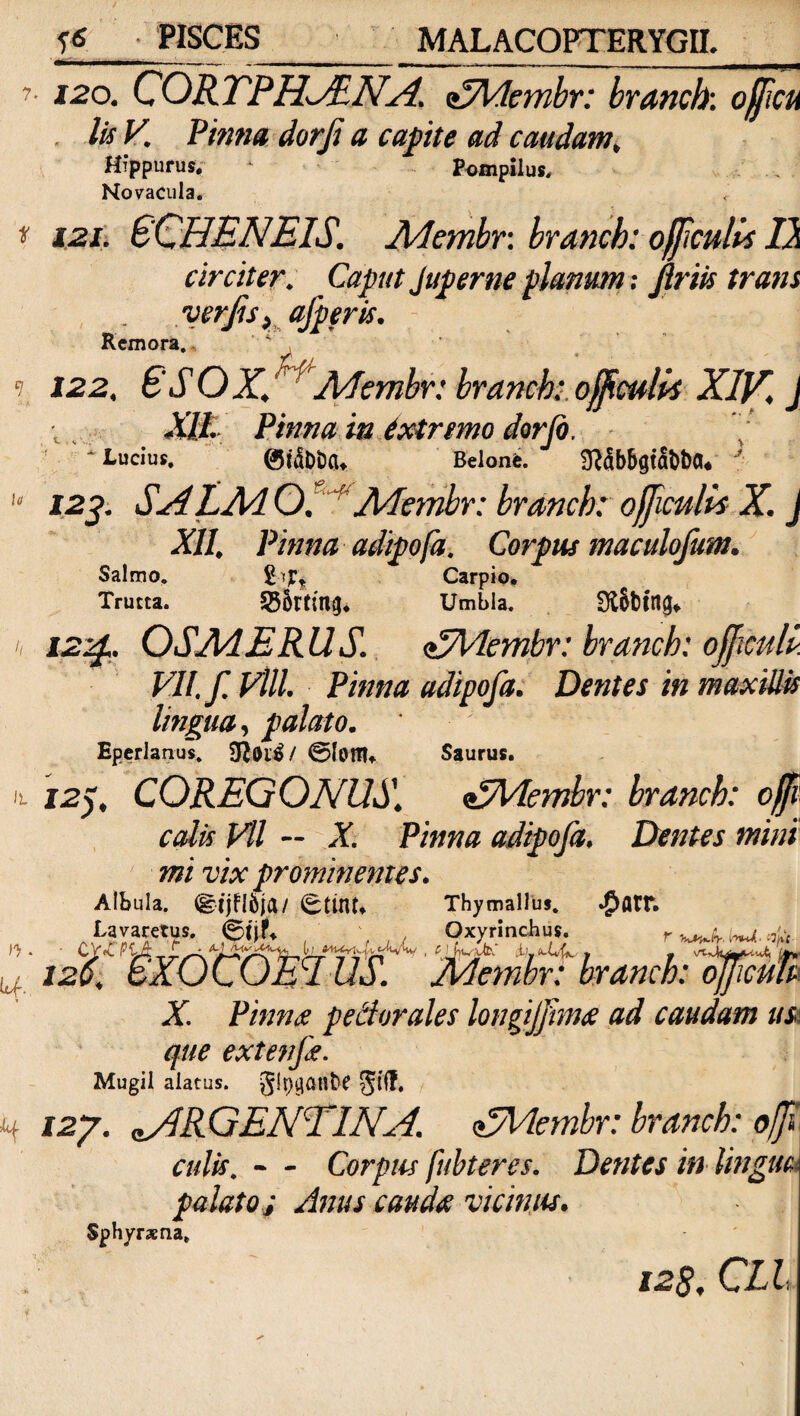 56 PISCES MALACOPTERYGII.
7. 120. CORYPHÆNA. Membr: branch: oſſicu
lis V. Pinna dorſi a capite ad caudam.
Hippurus. Pompilus.
Novacula.
121. ECHENEIS. Membr: branch: oſſiculis IX
circiter. Caput ſuperne planum: ſtriis trans
verſis, aſperis.
Remora.
9 122. ESOX. Membr: branch: oſſiculis XIV. ſ
XII. Pinna in extremo dorſo.
Lucius. Giädda. Belone. Näbbgiädda.
10 123. SALMO. Membr: branch: oſſiculis X. ſ
XII. Pinna adipoſa. Corpus maculoſum.
Salmo. Lax. Carpio.
Trutta. Börting. Umbla. Röding.
11 124. OSMERUS. Membr: branch: oſſiculi
VII. ſ. VIII. Pinna adipoſa. Dentes in maxillis
lingua, palato.
Eperlanus. Nors/ Slom. Saurus.
12 125. COREGONUS. Membr: branch: oſſi
culis VII -- X. Pinna adipoſa. Dentes mini
mi vix prominentes.
Albula. Sijklöja/ Stint. Thymallus. Harr.
Lavaretus. Sijk. Oxyrinchus.
13.
126. EXOCOETUS. Membr: branch: oſſiculi
X. Pinnæ pectorales longiſſimæ ad caudam us
que extenſæ.
Mugil alatus. Flygande Fiſk.
14 127. ARGENTINA. Membr: branch: oſſi
culis. - - Corpus ſubteres. Dentes in lingua
palato; Anus caudæ vicinus.
Sphyræna.
128. CLU